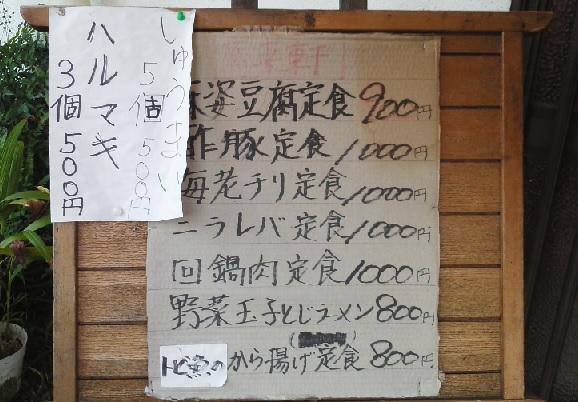 しゅうまい
5個500円
ハルマキ
3個500円
麻婆豆腐定食900円
豚定食1000円
海老チリ定食1000円
ニラレバ定食1000円
回鍋肉定食1000円
野菜玉子とじラーメン800円
トビ魚のから揚げ定食800円